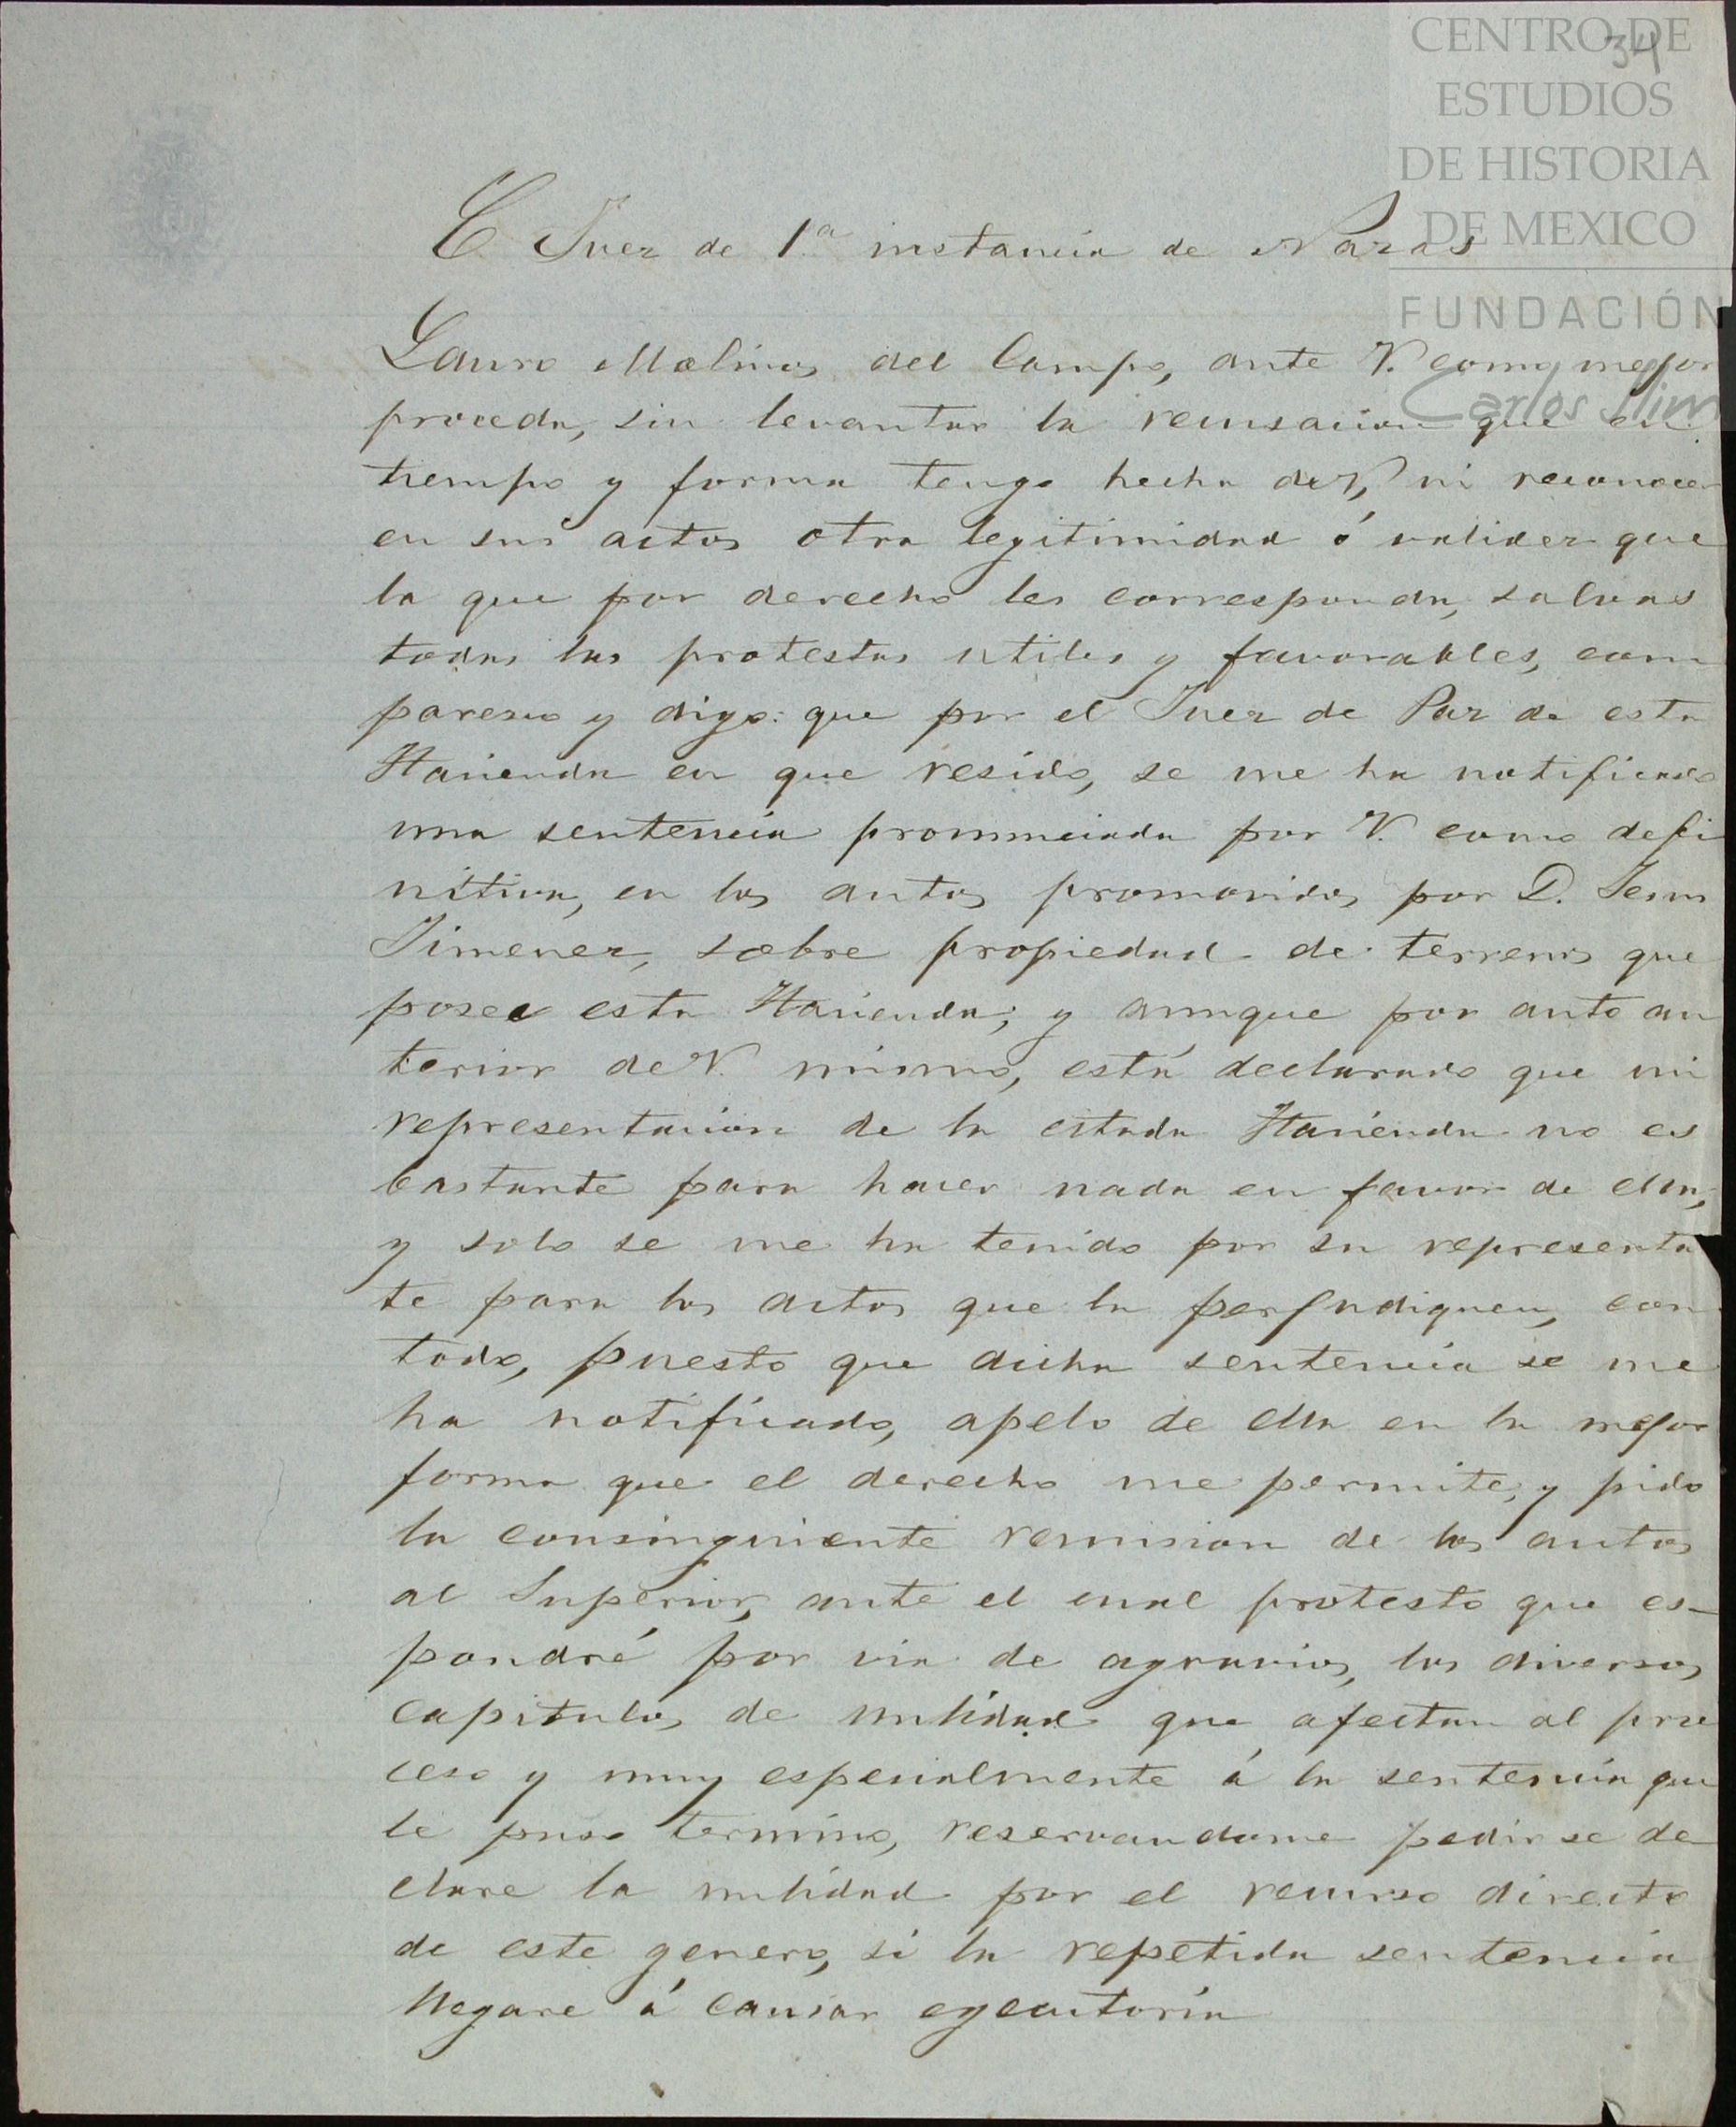 34
CENTRO DE
ESTUDIOS
DE HISTORIA
DE MEXICO
FUNDACIÓN
Carlos Slim
C Juez de 1ª instancia de Nazas
Lauro Molinos del Campo, ante V. como mejor
proceda, sin levantar la recusacion que en
tiempo y forma tengo hecha de V, ni reconocer
en sus actos otra legitimidad ó validez que
la que por derecho les corresponda, salvas
todas las protestas utiles y favorables, com
paresco y digo: que por el Juez de Paz de esta
Hacienda en que resido, se me ha notificado
una sentencia pronunciada por V. como defi
nitiva, en los autos promovidos por D. Jesus
Jimenez, sobre propiedad de terrenos que
posee esta Hacienda; y aunque por auto an
terior de V. mismo, está declarado que mi
representacion de la citada Hacienda no es
bastante para hacer nada en favor de ella,
y solo se me ha tenido por su representa
te para los actos que la perjudiquen, con
todo, puesto que dicha sentencia se me
ha notificado, apelo de ella en la mejor
forma que el derecho me permite, y pido
la consinguiente remision de los autos
al Superior, ante el cual protesto que es-
pondré por via de agravios, los diversos
capitulos de nulidad que afectan al pro
ceso y muy especialmente á la sentencia que
le puso termino, reservandome pedir se de
clare la nulidad por el recurso directo
de este genero, si la repetida sentencia
llegare á causar egecutoria